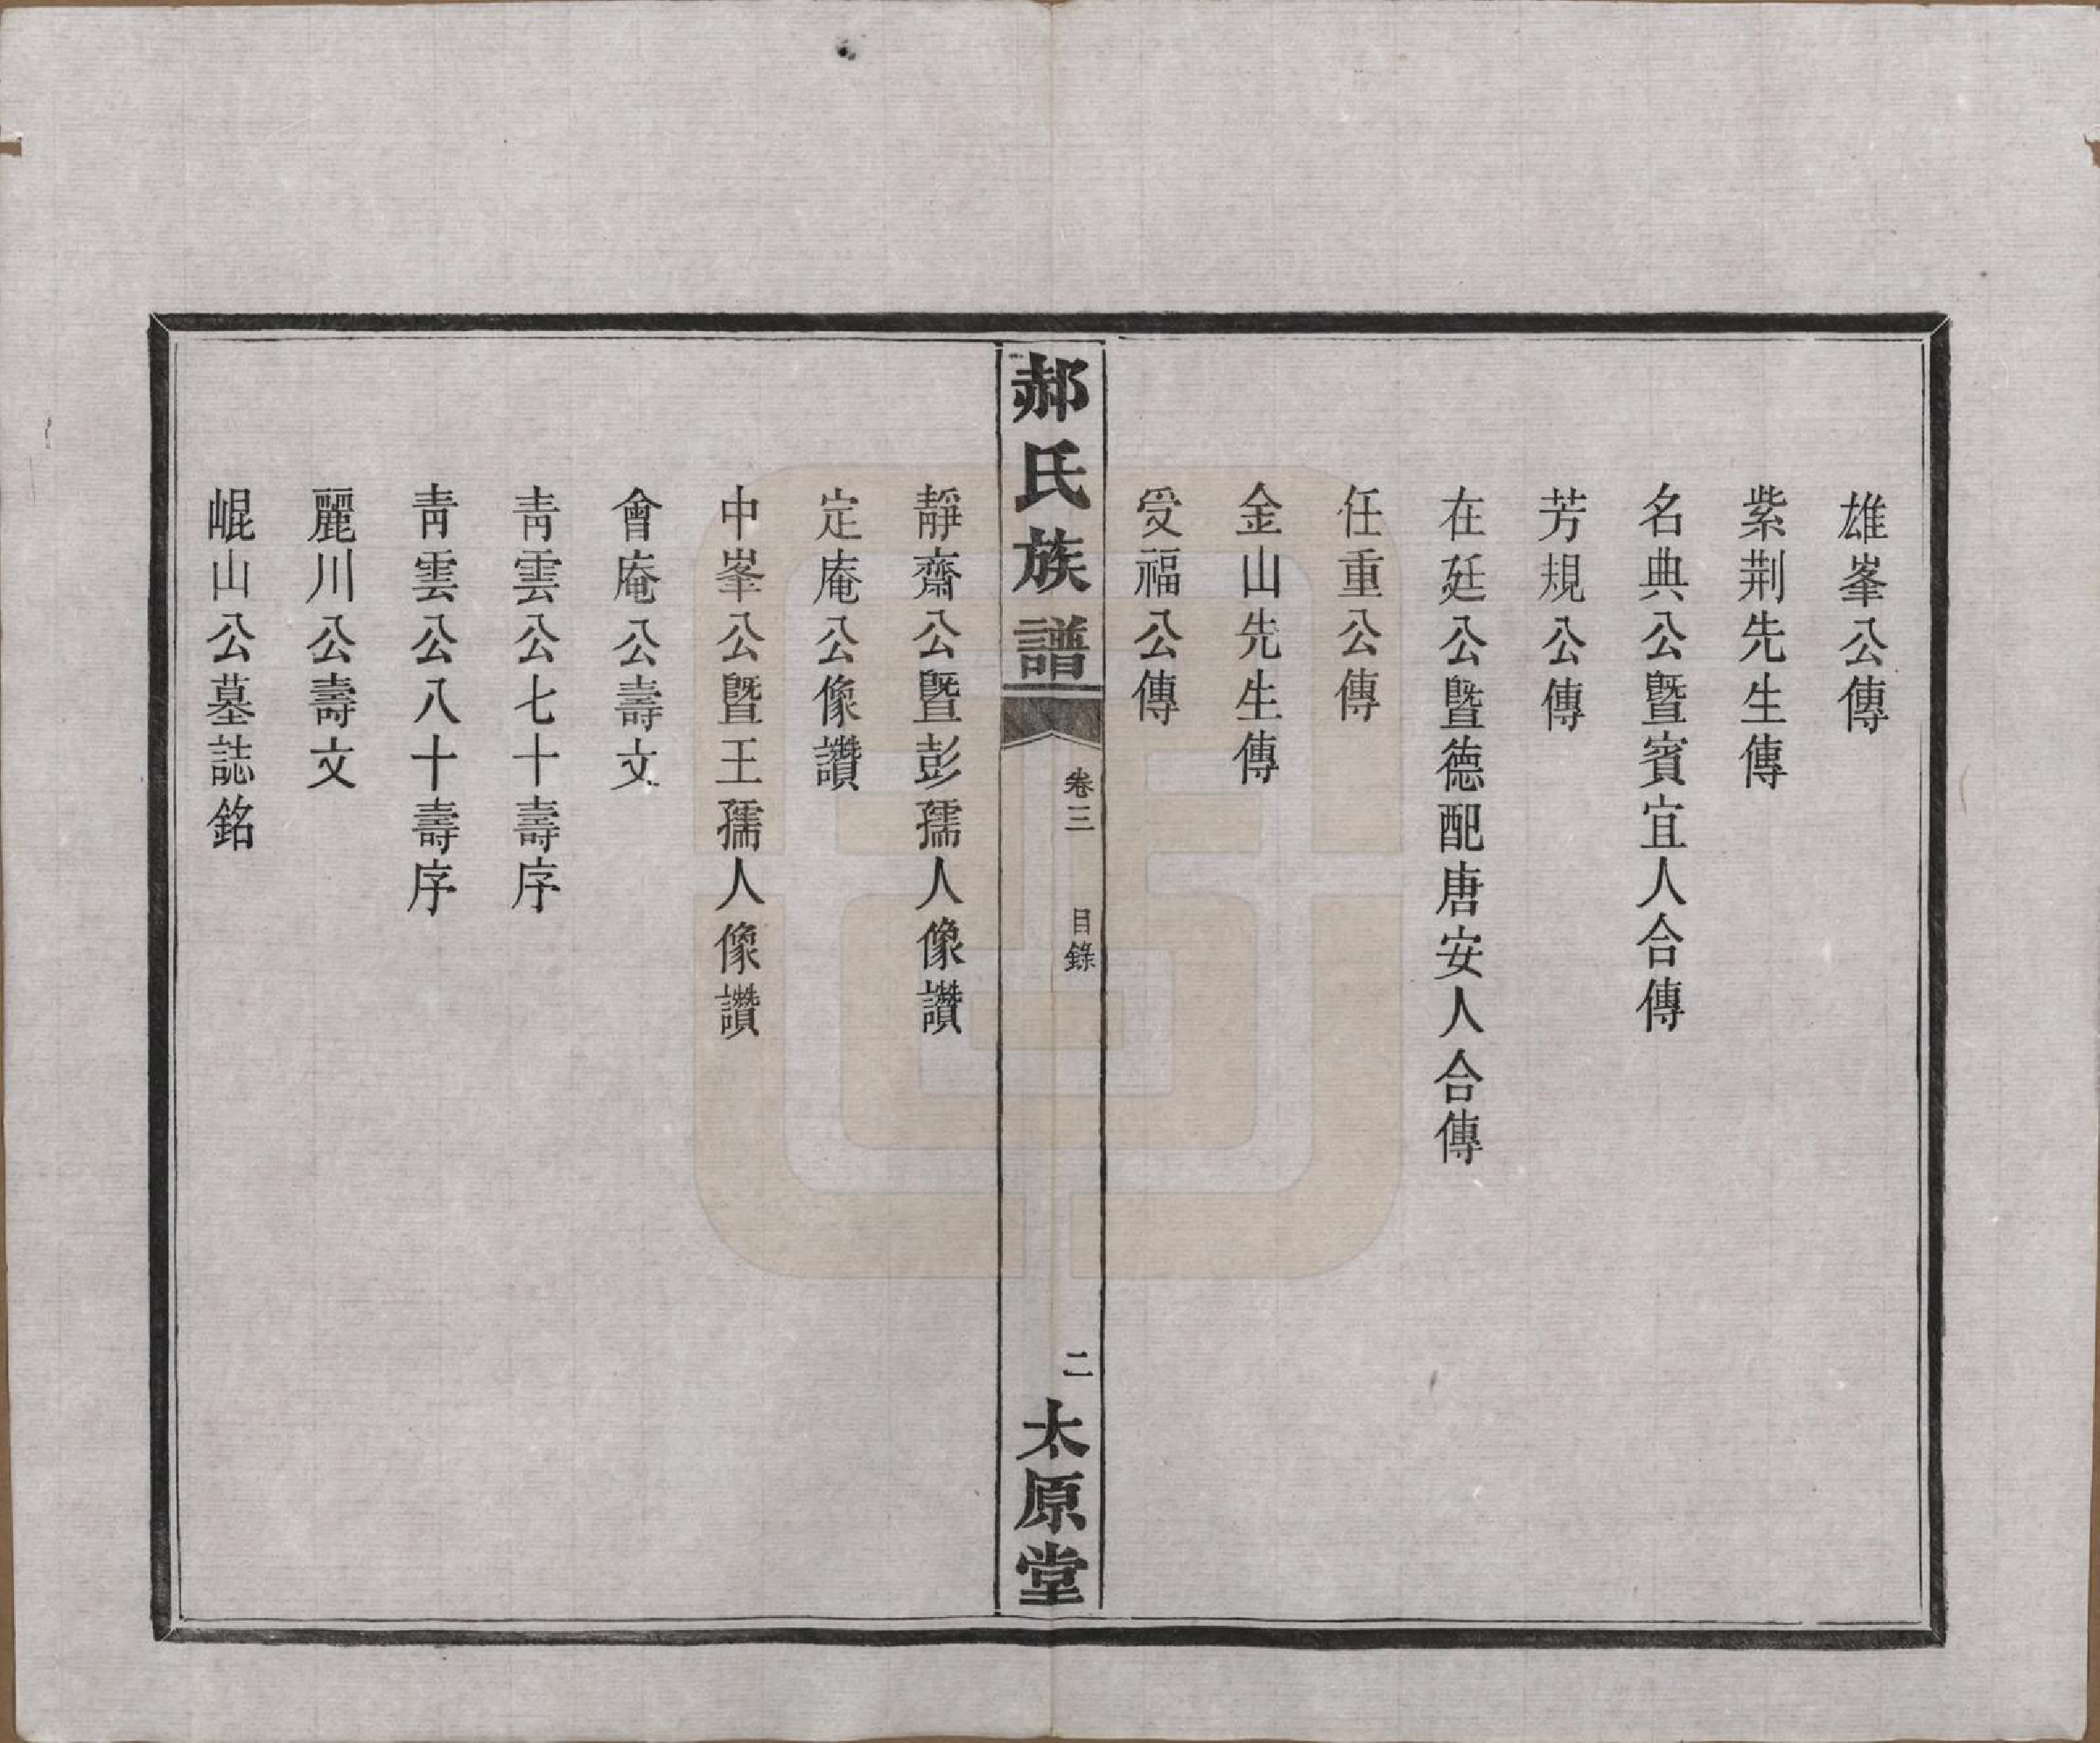 雄峯公傳
紫荆先生傳
名典公暨賓宜人合傳
芳規公傳
在廷公暨德配唐安人合傳
任重公傳
金山先生傳
受福公傳
郝氏族譜
卷三
目錄
二
太原堂
靜齋公暨彭孺人像讚
定庵公像讚
中峯公暨王孺人像讚
會庵公壽文
靑雲公七十壽序
靑雲公八十壽序
麗川公壽文
崐山公墓誌銘